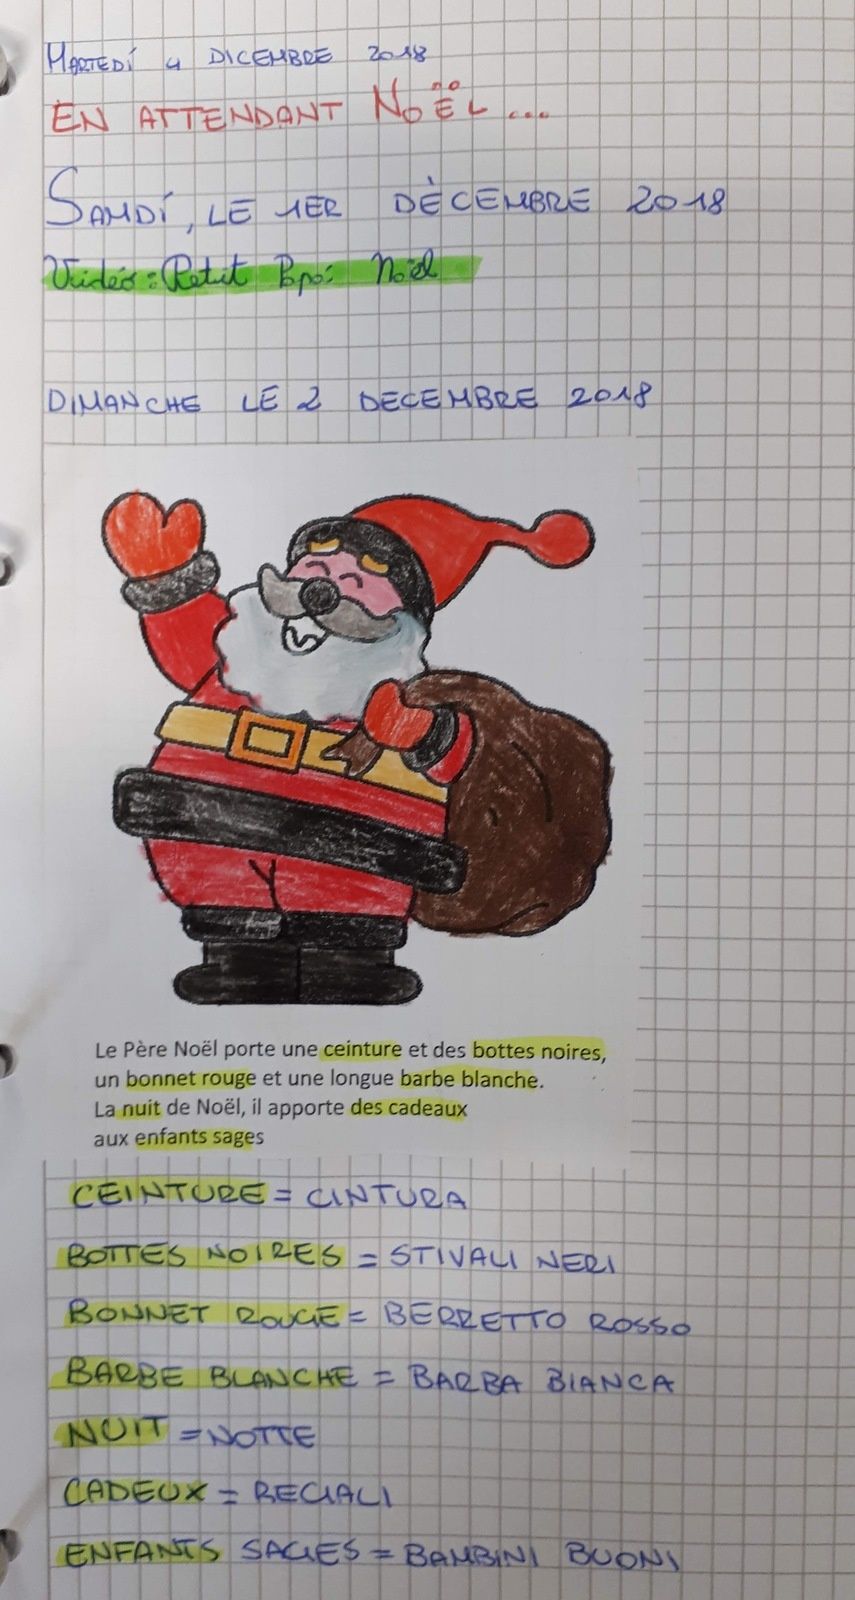 MARTEDÍ 4 DICEMBRE 2018
EN ATTENDANT NOËL...
SAMDÍ, LE 1ER DÈCEMBRE 2018
Vidéo: Petit Papá Noël
DIMANCHE LE 2 DECEMBRE 2018
Le Père Noël porte une ceinture et des bottes noires,
un bonnet rouge et une longue barbe blanche.
La nuit de Noël, il apporte des cadeaux
aux enfants sages
CEINTURE = CINTURA
BOTTES NOIRES = STIVALI NERI
BONNET ROUGE = BERRETTO ROSSO
BARBE BLANCHE = BARBA BIANCA
NUIT = NOTTE
CADEUX = REGALI
ENFANTS SAGES = BAMBINI BUONI